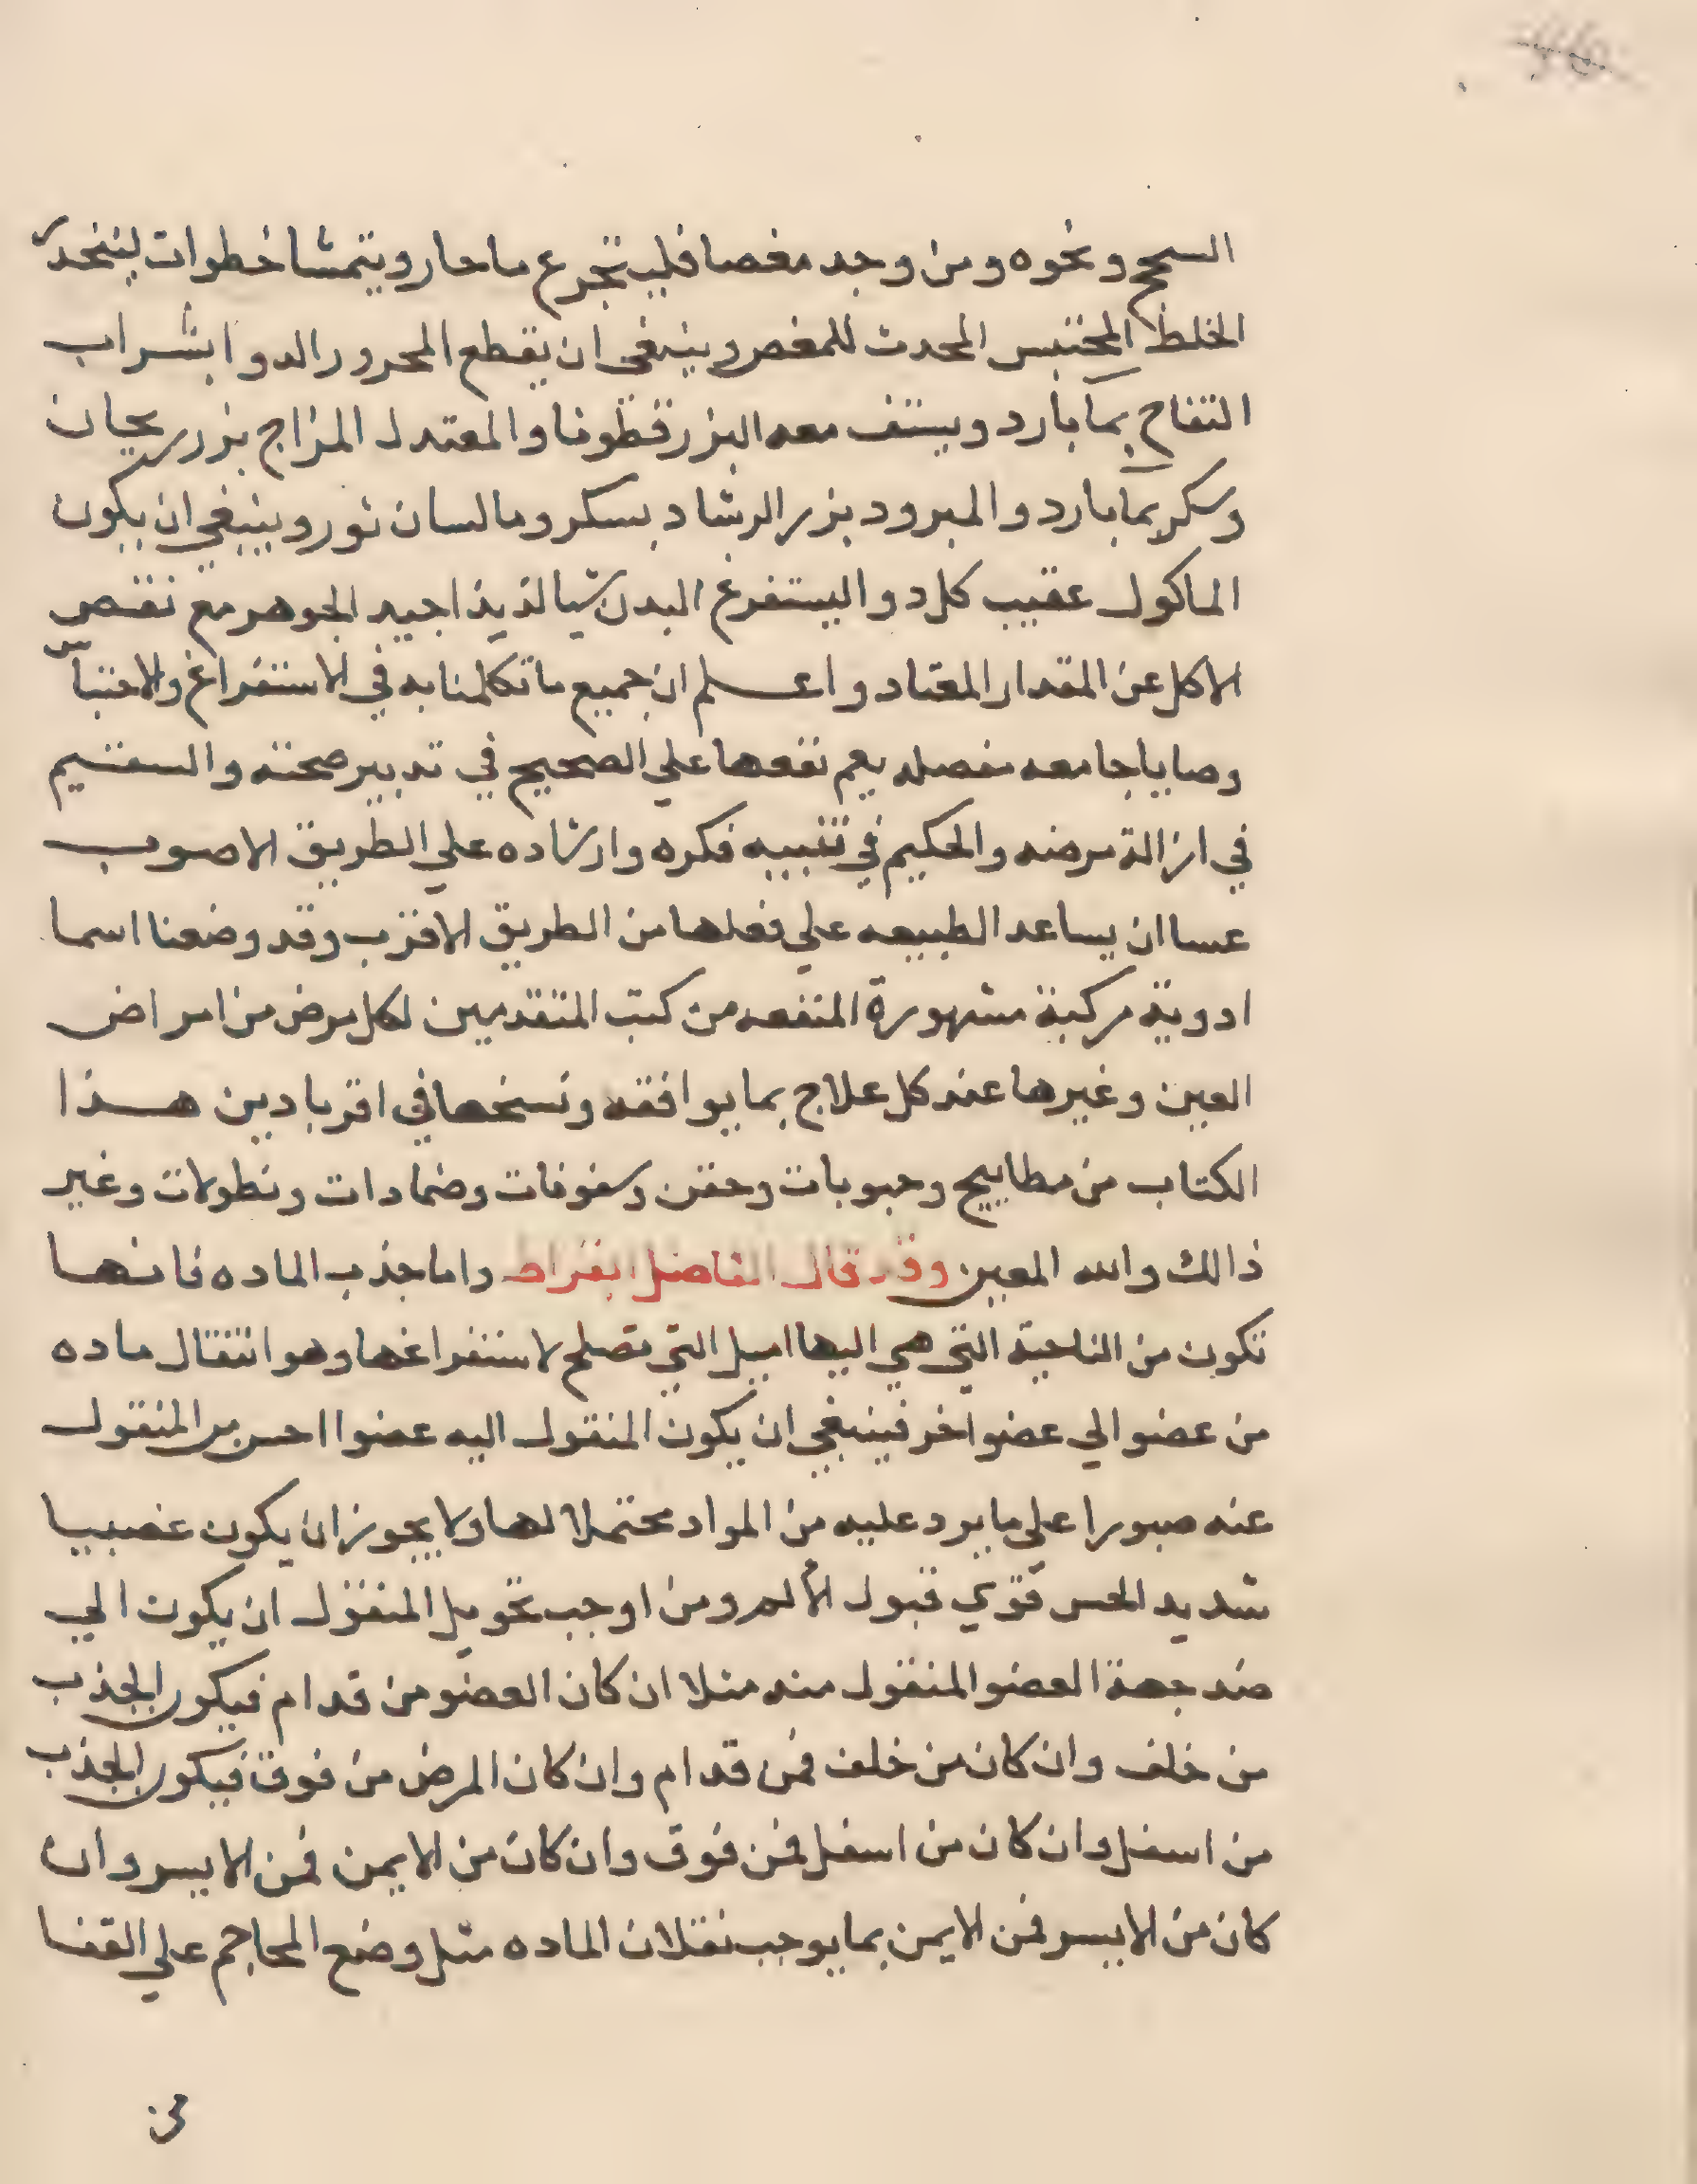 السحج ونحوه ومن وجد مغصا فليتجرع ما حار ويتمشا خطوات لينحدر
الخلط المحتبس المحدث للمغص وينبغى ان يقطع المحرور الدوا بشراب
التفاح بمآ بارد ويستف معه البزر قطونا والمعتدل المزاج بزر ريحان
وسكر بمآ بارد والمبرود بزر الرشاد بسكر وما لسان ثور وينبغي ان يكون
الماكول عقيب كل دوا ليستفرغ البدن شيا لذيذا جيد الجوهر مع نقص
الاكل عن المقدار المعتاد واعلم ان جميع ما تكلمنا به في الاستفراغ والاحتباس
وصايا جامعه مفصله يعم نفعها علي الصحيح في تدبير صحته والسقيم
في ازالة مرضه والحكيم في تنبيه فكره وارشاده علي الطريق الاصوب
عسا ان يساعد الطبيعه علي فعلها من الطريق الاقرب وقد وضعنا اسما
ادوية مركبة مشهورة المنفعه من كتب المتقدمين لكل مرض من امراض
العين وغيرها عند كل علاج بما يوافقه ونسخها في اقربادين هذا
الكتاب من مطابيخ وحبوبات وحقن وسفوفات وضمادات ونطولات وغير
ذالك والله المعين وقد قال الفاضل ابقراط واما جذب الماده فانها
تكون من الناحية التي هي اليها اميل التي تصلح لاستفراغها وهو انتقال ماده
من عضو الي عضو اخر فينبغي ان يكون المنقول اليه عضوا احس من المنقول
عنه صبورا علي ما يرد عليه من المواد محتملا لها ولا يجوز ان يكون عصبيا
شديد الحس قوي قبول الألم ومن اوجب تحويل المنقول ان يكون الي
ضد جهة العضو المنقول منه مثلا ان كان العضو من قدام فيكون الجذب
من خلف وان كان من خلف فمن قدام وان كان المرض من فوق فيكون الجذب
من اسفل وان كان من اسفل فمن فوق وان كان من الايمن فمن الايسر وان
كان من الايسر فمن الايمن بما يوجب نقلان الماده مثل وضع المحاجم علي القفا